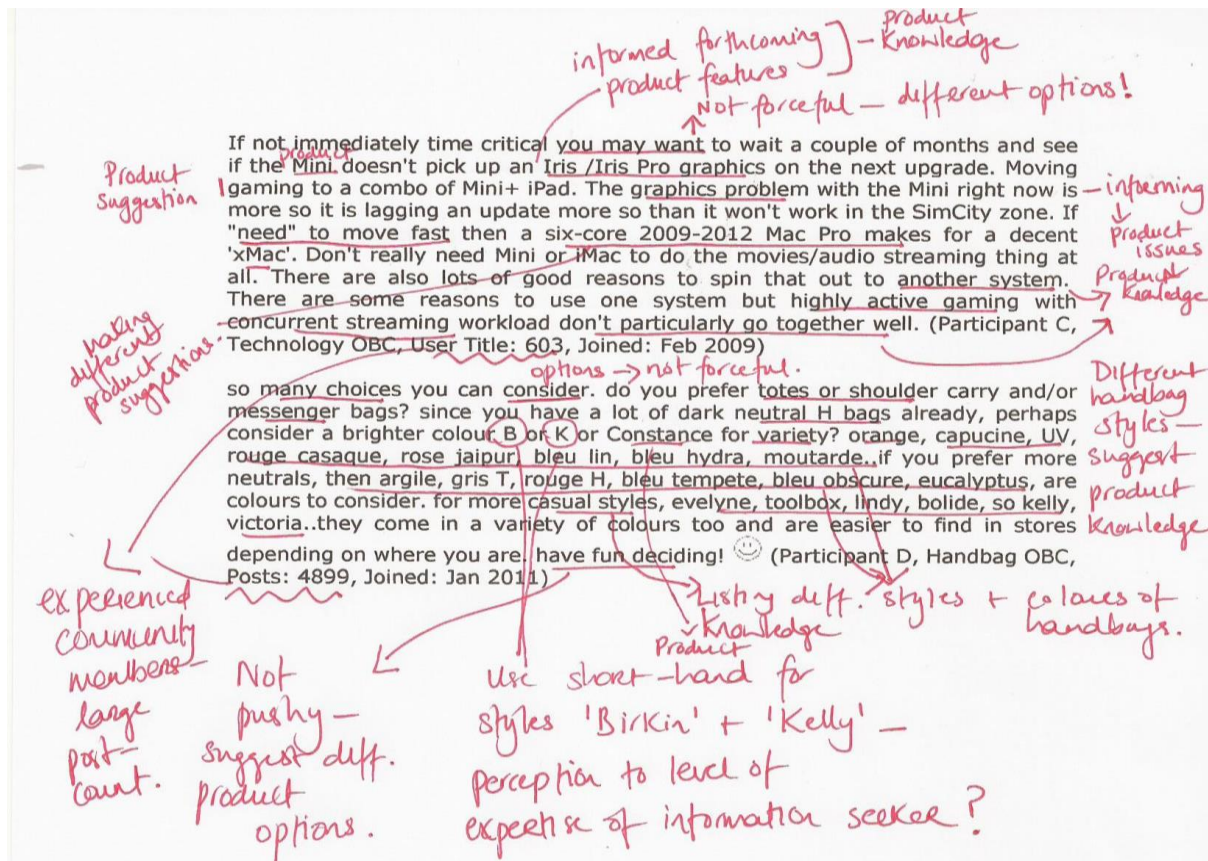 informed forthcoming
product features
- Product
Knowledge
Not forceful - different options!
If not immediately time critical you may want to wait a couple of months and see
product
if the Mini doesn't pick up an Iris /Iris Pro graphics on the next upgrade. Moving
gaming to a combo of Mini+ iPad. The graphics problem with the Mini right now is
more so it is lagging an update more so than it won't work in the SimCity zone. If
"need" to move fast then a six-core 2009-2012 Mac Pro makes for a decent
'xMac'. Don't really need Mini or iMac to do the movies/audio streaming thing at
all. There are also lots of good reasons to spin that out to another system.
There are some reasons to use one system but highly active gaming with
concurrent streaming workload don't particularly go together well. (Participant C,
Technology OBC, User Title: 603, Joined: Feb 2009)
Product
suggestion
- informing
product
issues
Product
knowledge
making
different
product
suggestions.
options → not forceful.
so many choices you can consider. do you prefer totes or shoulder carry and/or
messenger bags? since you have a lot of dark neutral H bags already, perhaps
consider a brighter colour B or K or Constance for variety? orange, capucine, UV,
rouge casaque, rose jaipur, bleu lin, bleu hydra, moutarde..if you prefer more
neutrals, then argile, gris T, rouge H, bleu tempete, bleu obscure, eucalyptus, are
colours to consider. for more casual styles, evelyne, toolbox, lindy, bolide, so kelly,
victoria..they come in a variety of colours too and are easier to find in stores
depending on where you are. have fun deciding! (Participant D, Handbag OBC,
Posts: 4899, Joined: Jan 2011)
Different
handbag
styles -
suggest
product
knowledge
experienced
community
members -
large
post-
count.
Not
pushy -
suggest diff.
product
options.
Use short-hand for
styles 'Birkin' + 'Kelly' -
perception to level of
expertise of information seeker?
Product
Knowledge
Listing diff. styles + colours of
handbags.